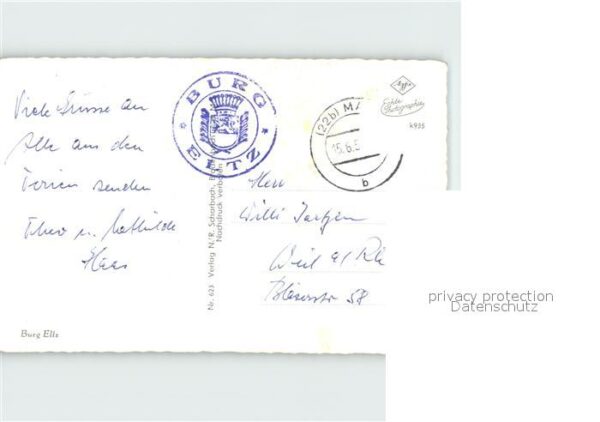 Viele Grüsse an
Alle aus den
Ferien senden
Theo u. Mathilde
Haas
Burg Eltz
BURG
ELTZ
Nr. 623 Verlag N/R. Schorbach,
Nachdruck verboten
(22b) MA
15.6.5
b
Agfa
Echte
Photographie
4935
Herrn
Willi
Weil a/Rh
58
privacy protection
Datenschutz